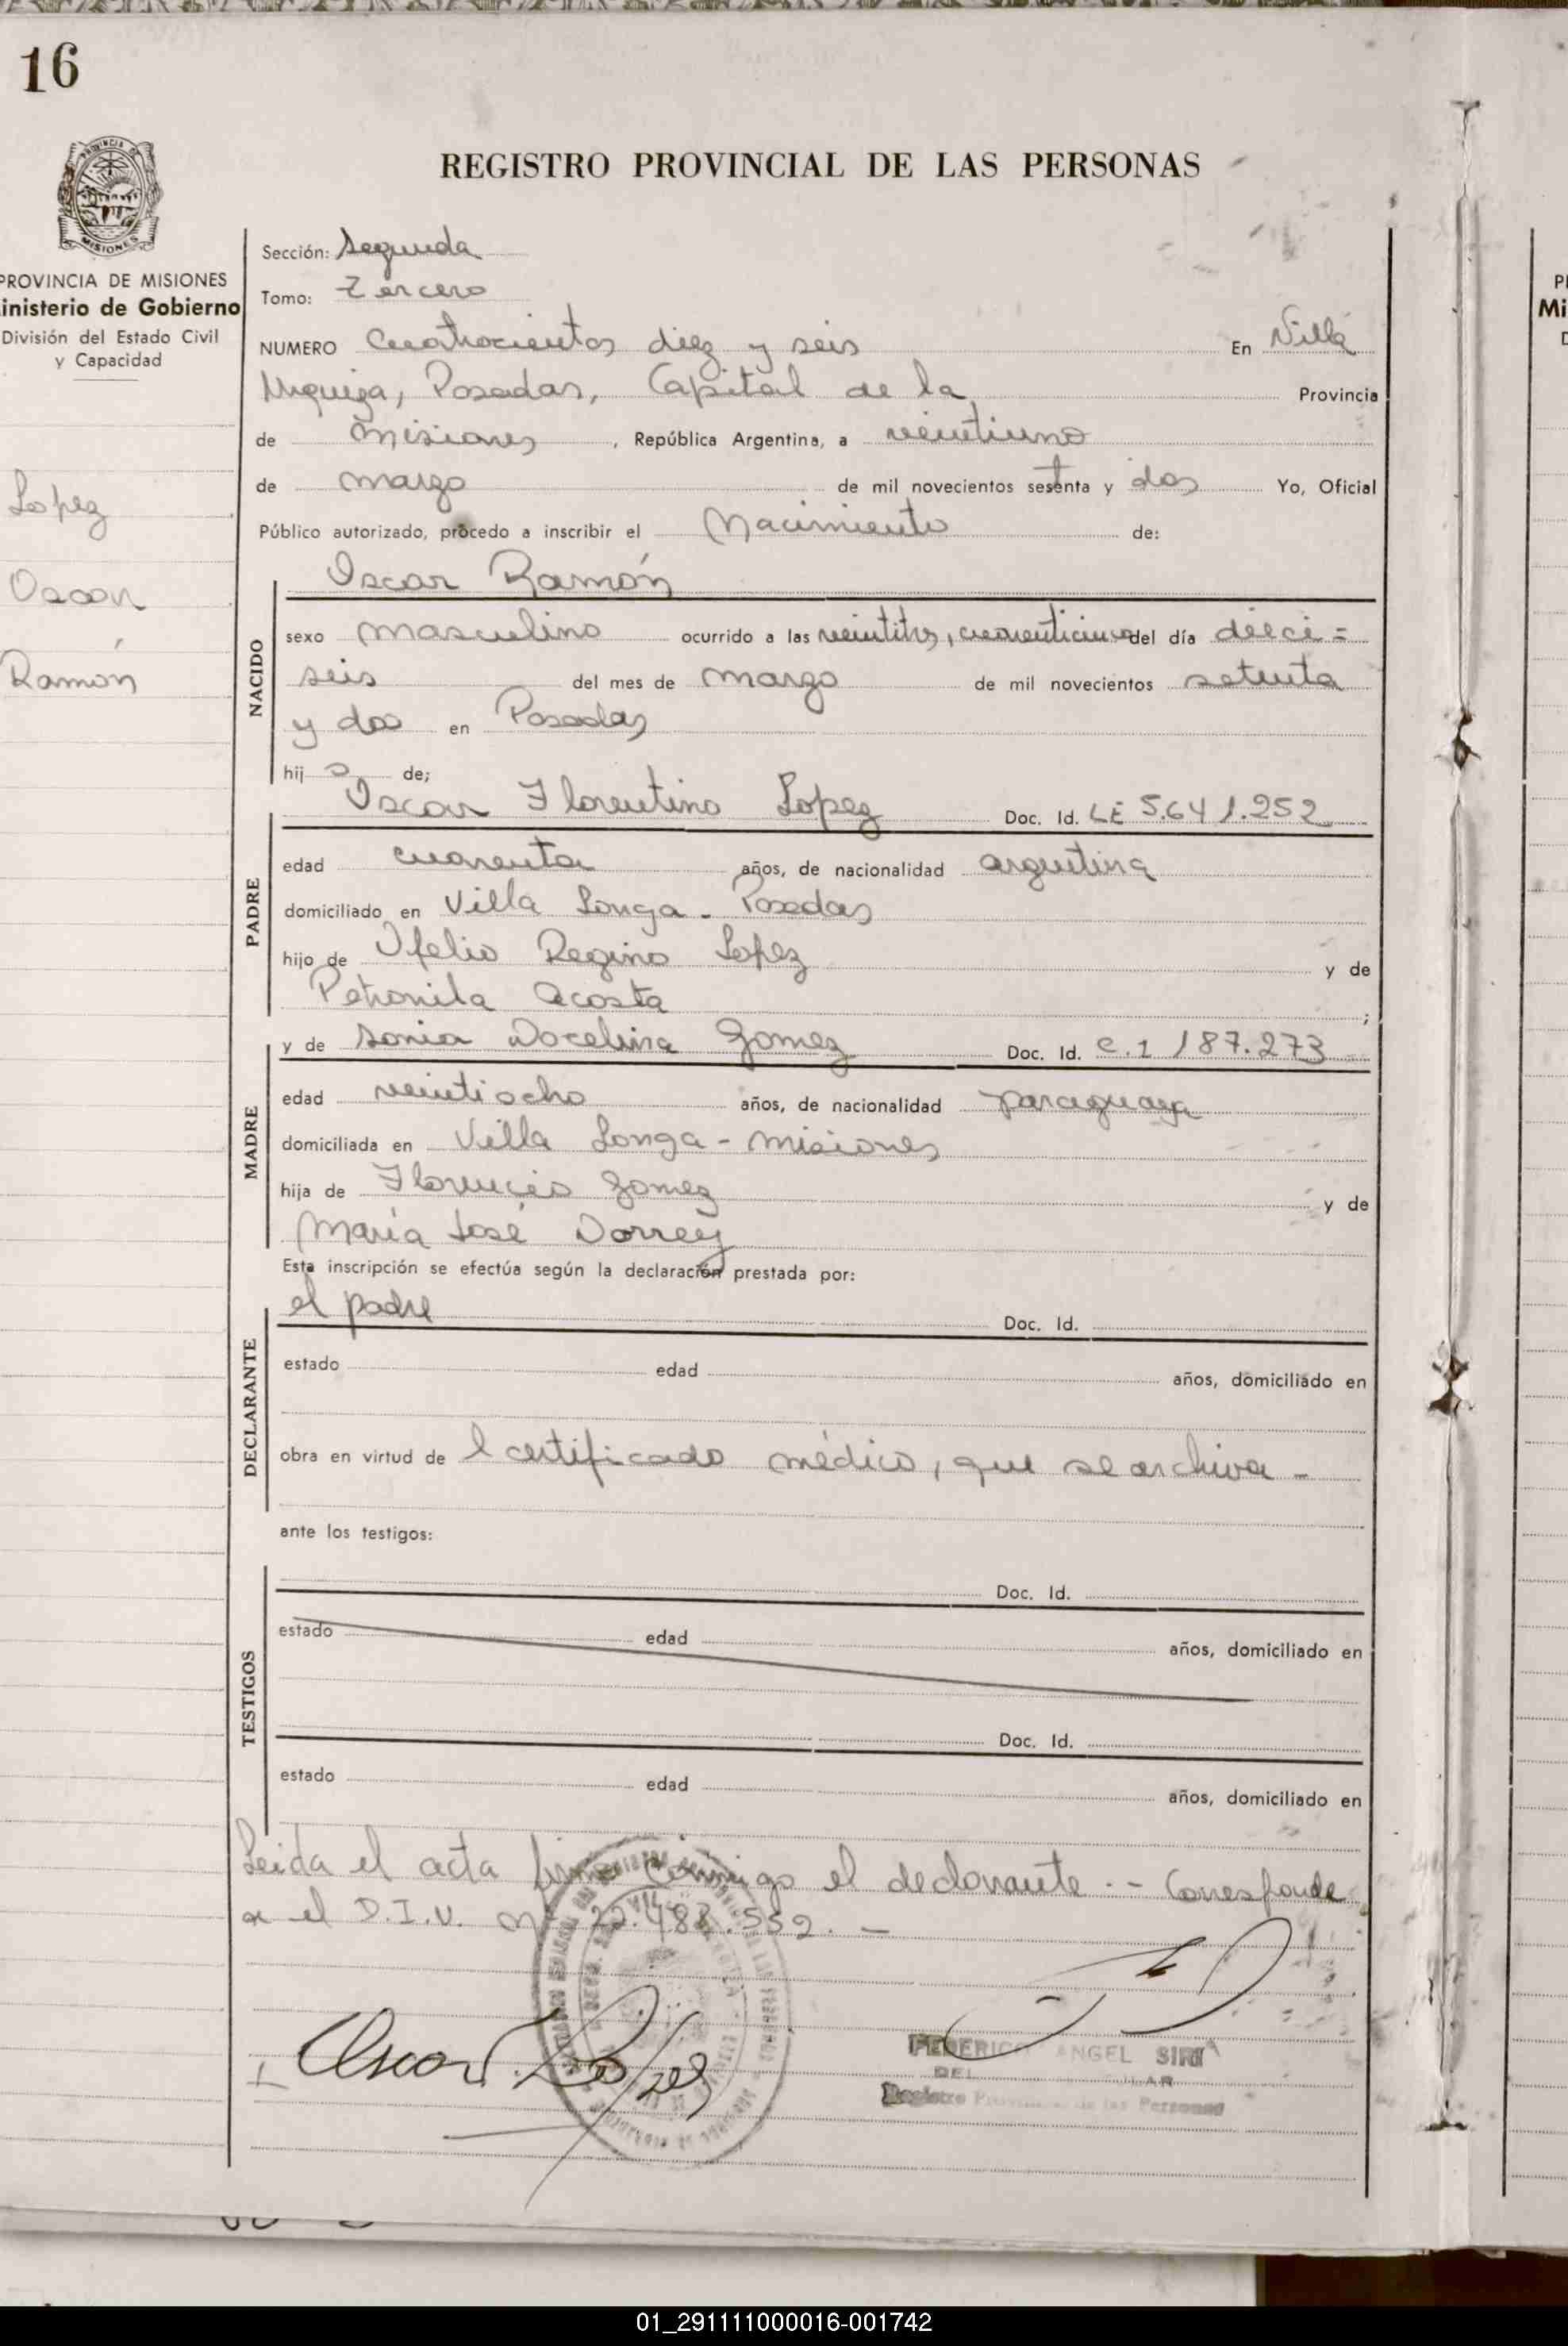 16
REGISTRO PROVINCIAL DE LAS PERSONAS
PROVINCIA DE
MISIONES
PROVINCIA DE MISIONES
inisterio de Gobierno
División del Estado Civil
y Capacidad
Lopez
Oscar
Ramón
Sección: Segunda
Tomo: Tercero
NUMERO Cuatrocientos diez y seis En Villa
Urquiza, Posadas, Capital de la Provincia
de Misiones, República Argentina, a veintiuno
de marzo de mil novecientos setenta y dos Yo, Oficial
Público autorizado, procedo a inscribir el Nacimiento de:
NACIDO
Oscar Ramón
sexo masculino ocurrido a las veintitrés, cuarenticinco del día dieci=
seis del mes de marzo de mil novecientos setenta
y dos en Posadas
hijo de;
PADRE
Oscar Florentino Lopez Doc. Id. LE 5.641.252
edad cuarenta años, de nacionalidad argentina
domiciliado en Villa Longa - Posadas
hijo de Ofelio Regino Lopez y de
Petronila Acosta ;
MADRE
y de Sonia Docelina Gomez Doc. Id. C.I 187.273
edad veintiocho años, de nacionalidad paraguaya
domiciliada en Villa Longa - Misiones
hija de Florencio Gomez y de
María José Dorrey
Esta inscripción se efectúa según la declaración prestada por:
DECLARANTE
el padre Doc. Id.
estado edad años, domiciliado en
obra en virtud de l certificado médico, que se archiva -
ante los testigos:
TESTIGOS
Doc. Id.
estado edad años, domiciliado en
Doc. Id.
estado edad años, domiciliado en
Leida el acta firma conmigo el declarante .- Corresponde
a el D.I.U. nº 22.488.552. -
Oscar F. Lopez
FEDERICO ANGEL SIRI
Registro Provincial de las Personas
PR
Mi
D
01_291111000016-001742